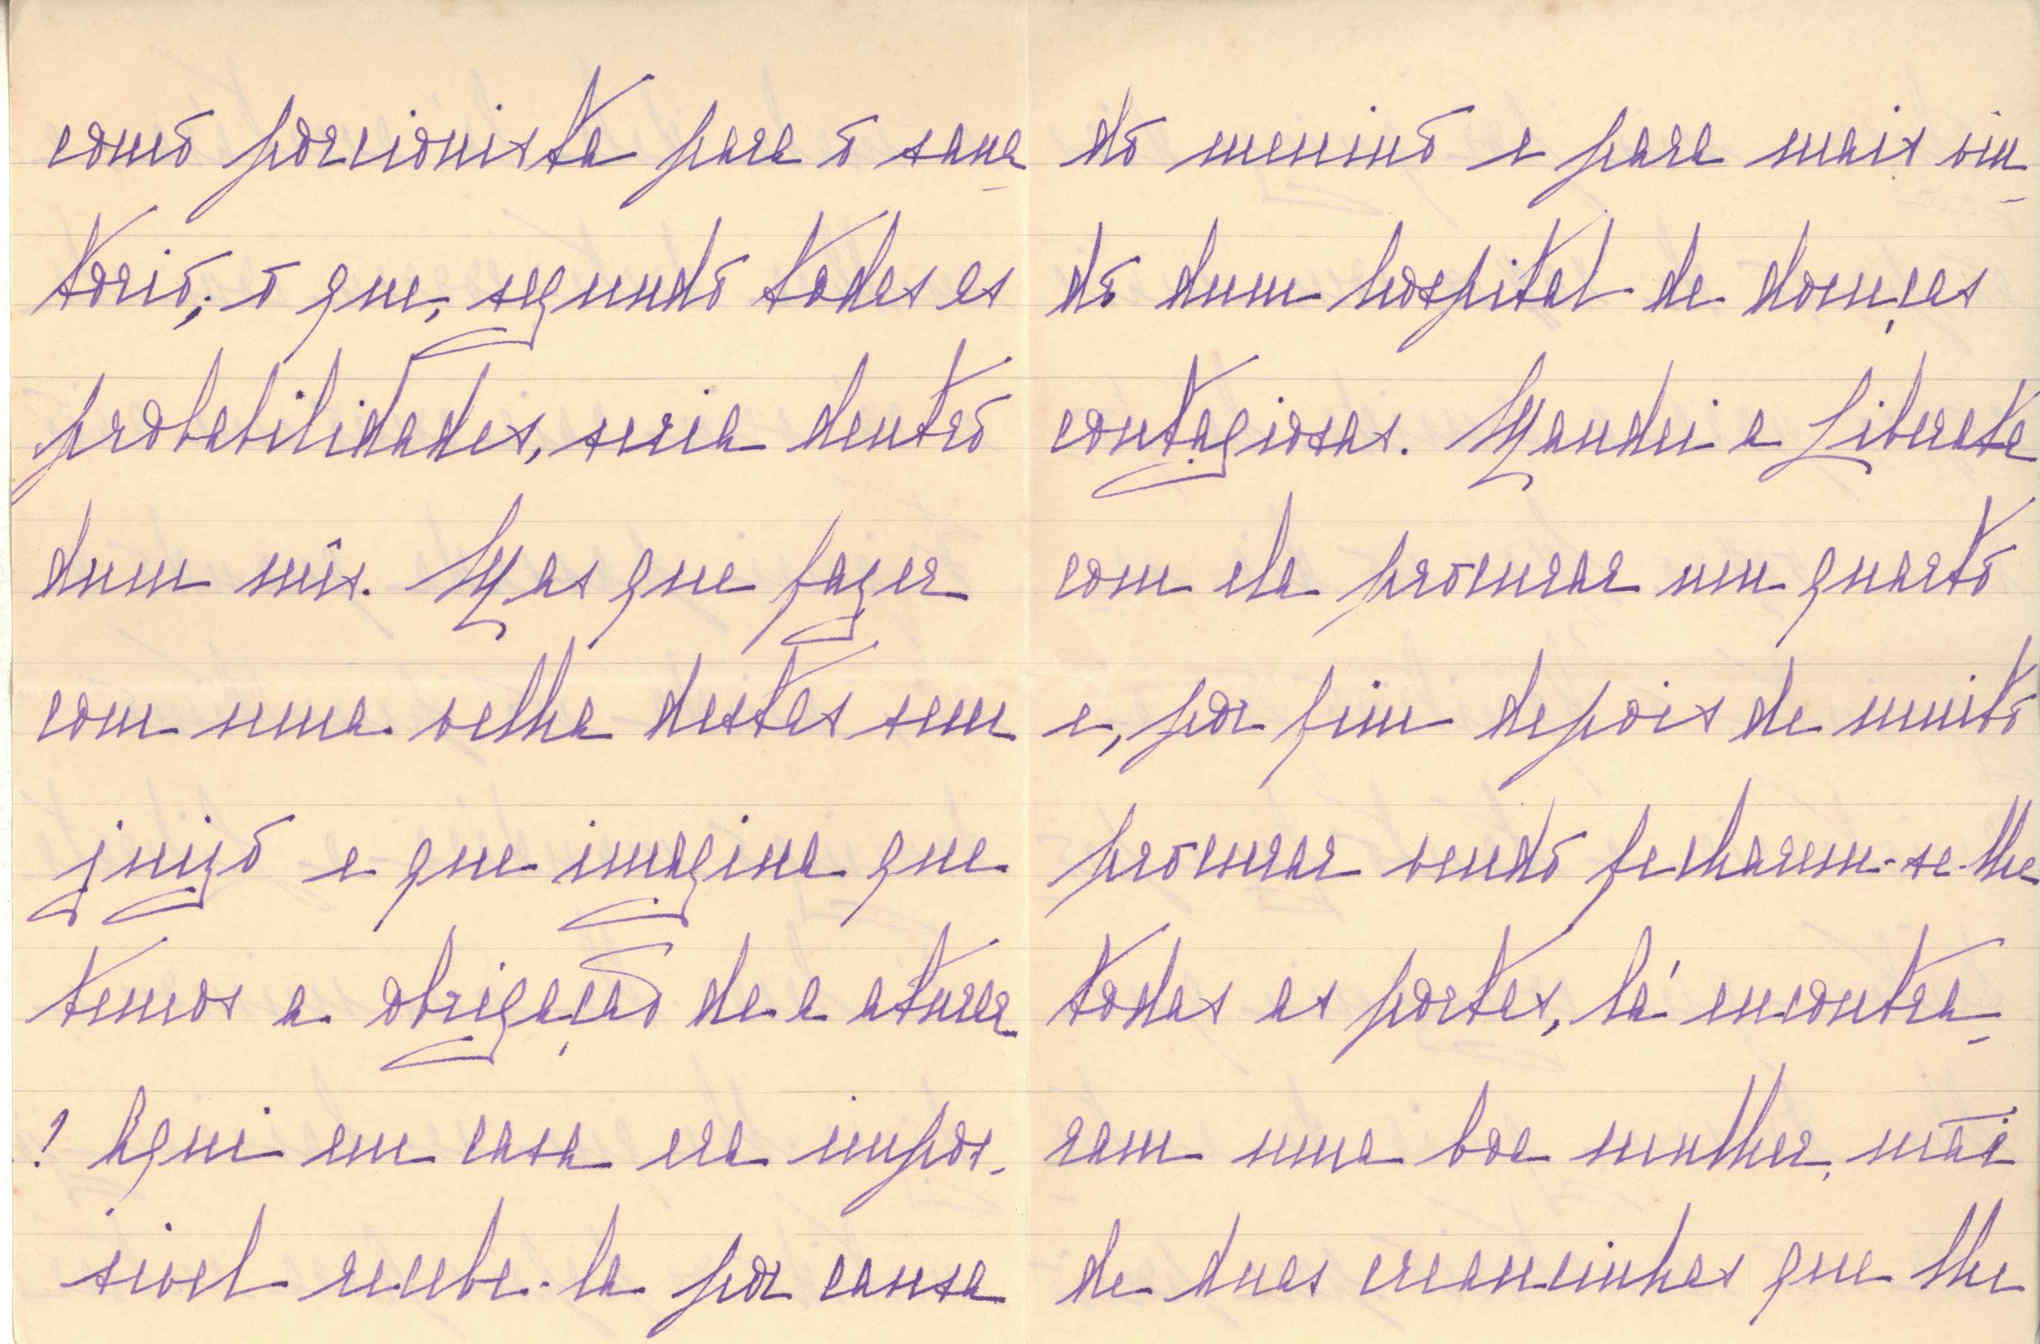 como porcionista para o sana
torio; o que, segundo todas as
probabilidades, seria dentro
dum mês. Mas que fazer
com uma velha destas sem
juizo e que imagina que
temos a obrigação de a aturar
? Aqui em casa era impos-
sivel recebe-la por causa
do menino e para mais vin
do dum hospital de doenças
contagiosas. Mandei a Liberata
com ela procurar um quarto
e, por fim depois de muito
procurar vendo fecharem-se-lhe
todas as portas, lá encontra
ram uma boa mulher, mãi
de duas creancinhas que lhe